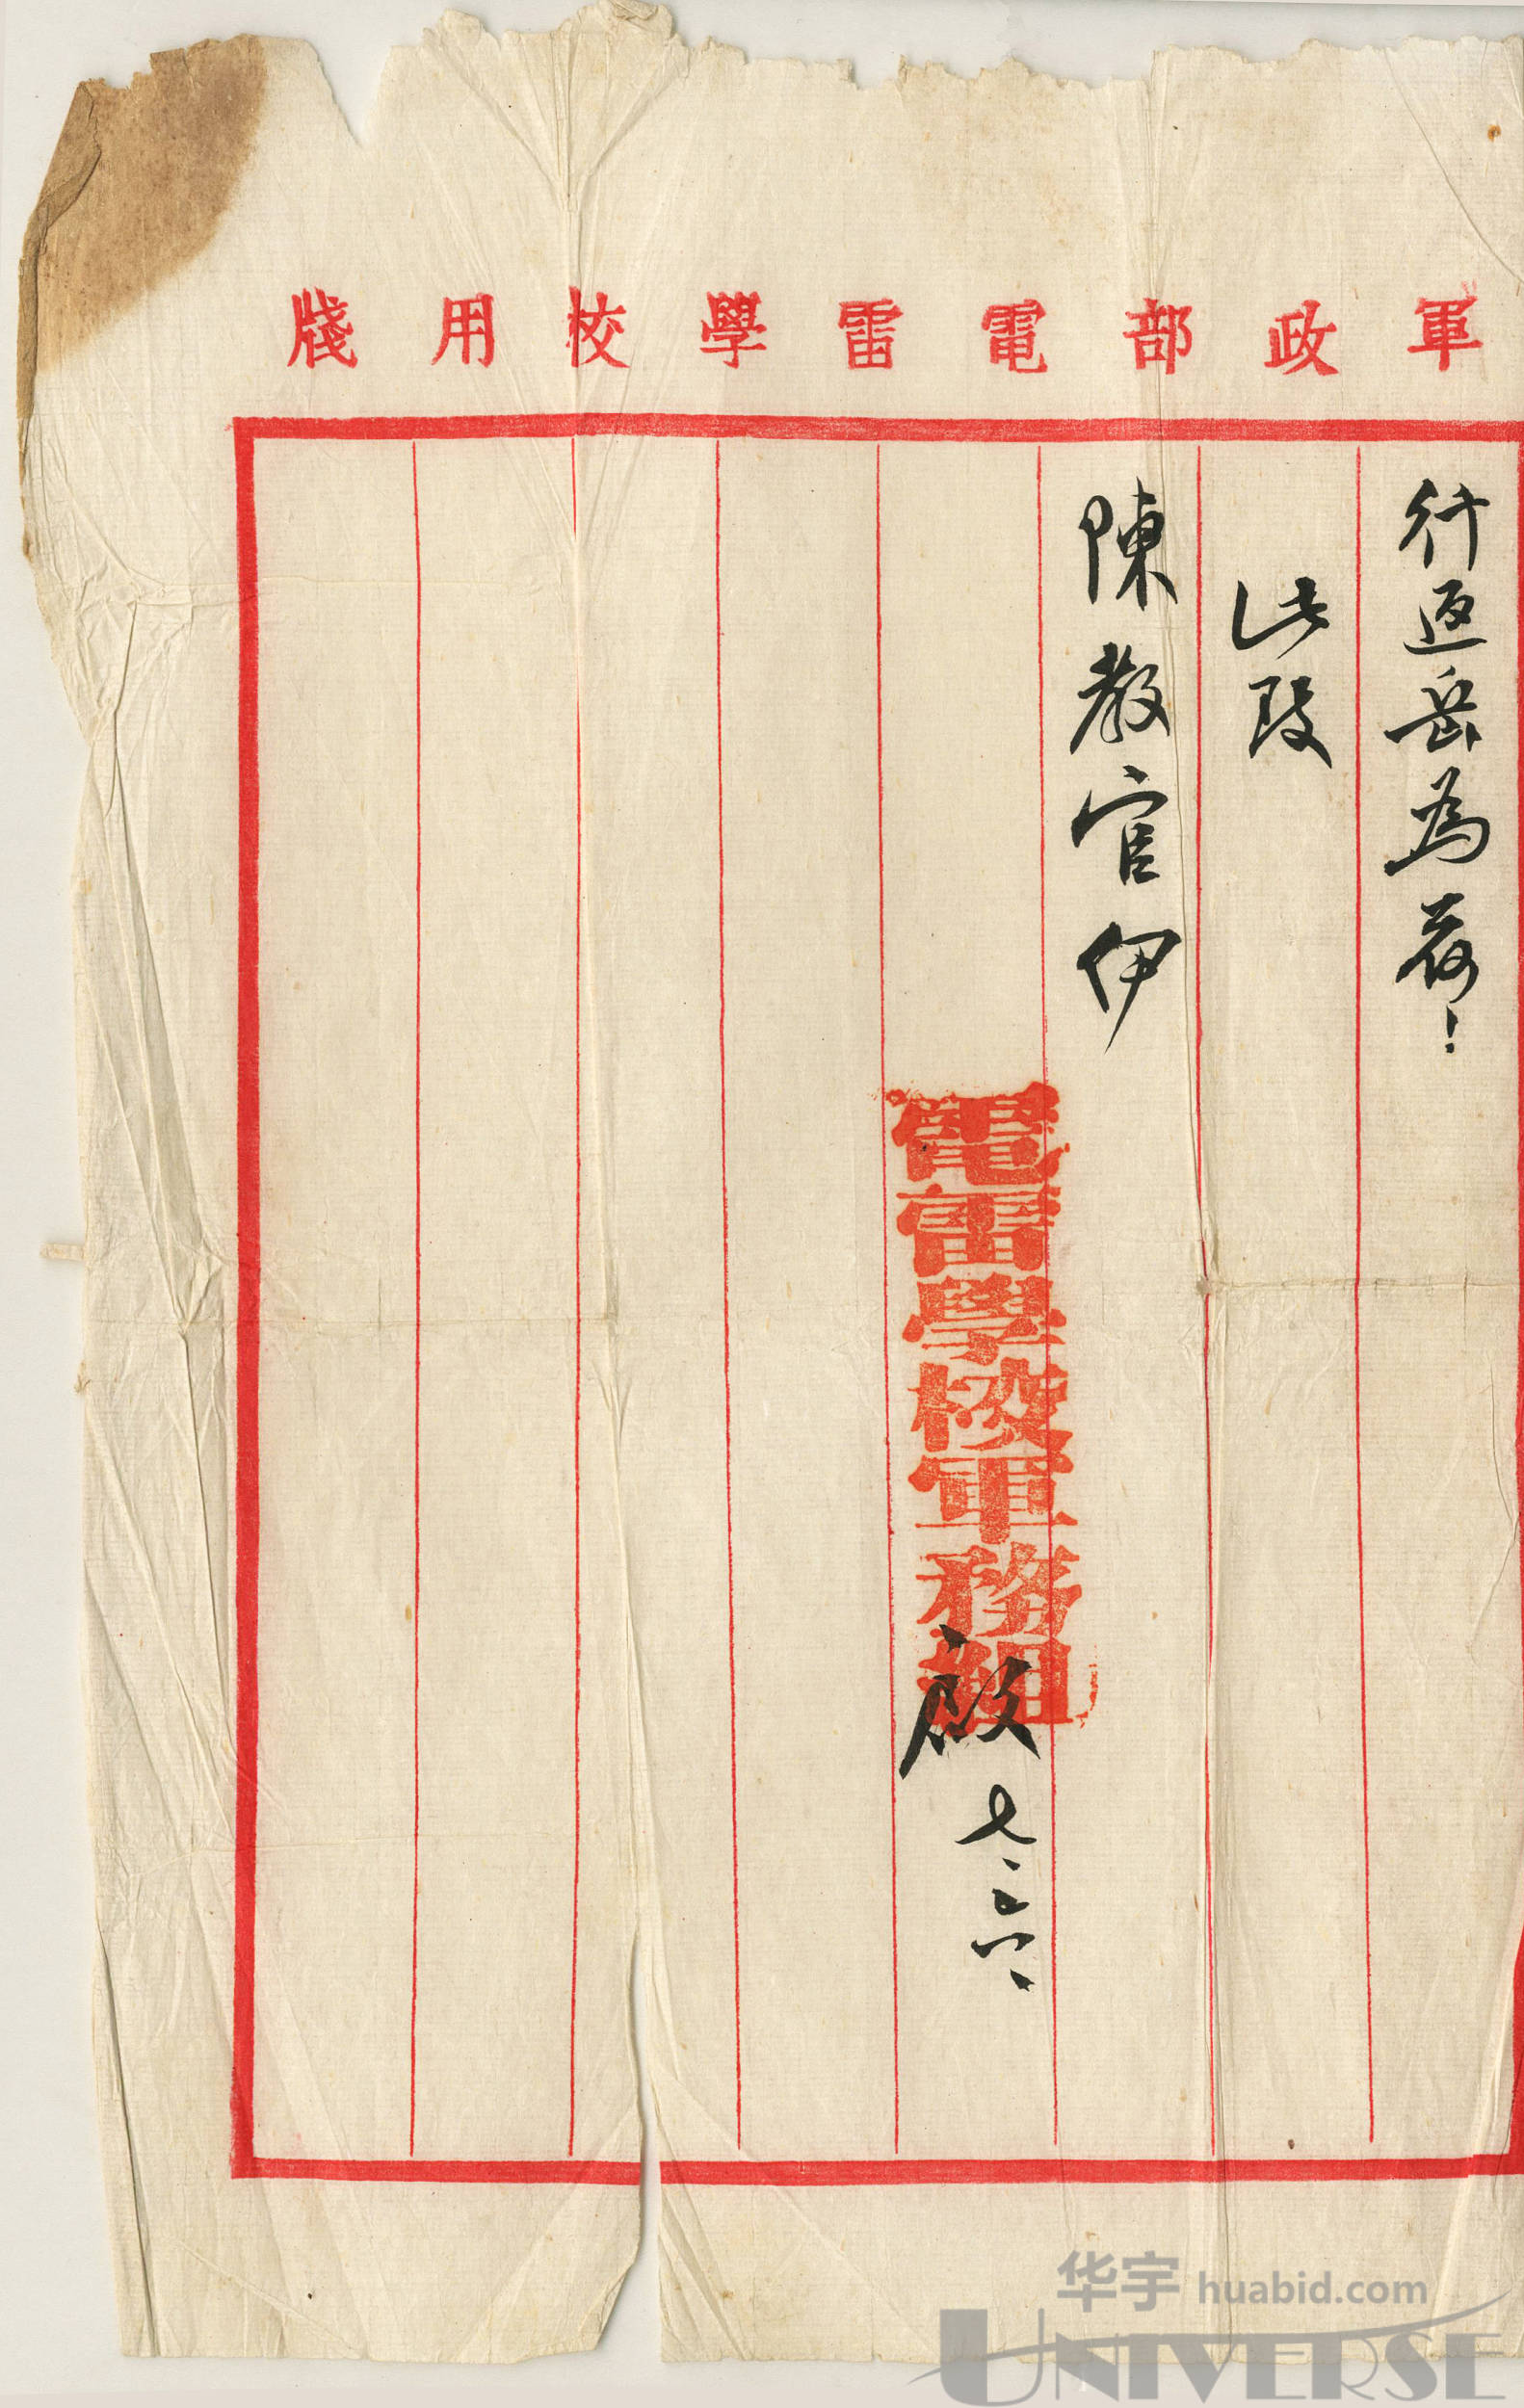 軍政部電雷學校用牋
行返岳為荷！
此致
陳教官伊
電雷學校軍務組
啟 七、六、
华宇 huabid.com
UNIVERSE